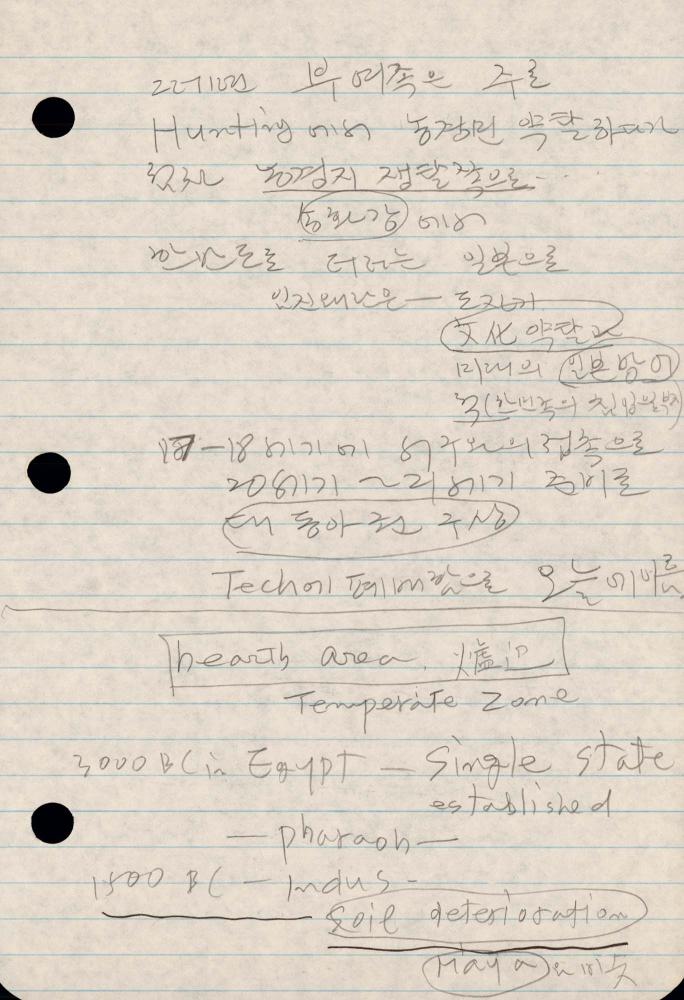 그러면 부여족은 주로
Hunting에서 농경민 약탈하다가
점차 농경지 쟁탈쪽으로...
송화강에서
한반도로 더러는 일본으로
임진왜란은 — 도자기
文化 약탈과
미래의 일본방어
목(한민족의 침입일부
17-18세기에 서구와의 접촉으로
20세기
대동아권 구상
Tech에 패배함으로 오늘에 이름
hearth area. 爐辺
Temperate Zone
3000 BC in Egypt — Single state
established
— pharaoh —
1500 BC — Indus -
Soil deterioration
Maya와 비슷